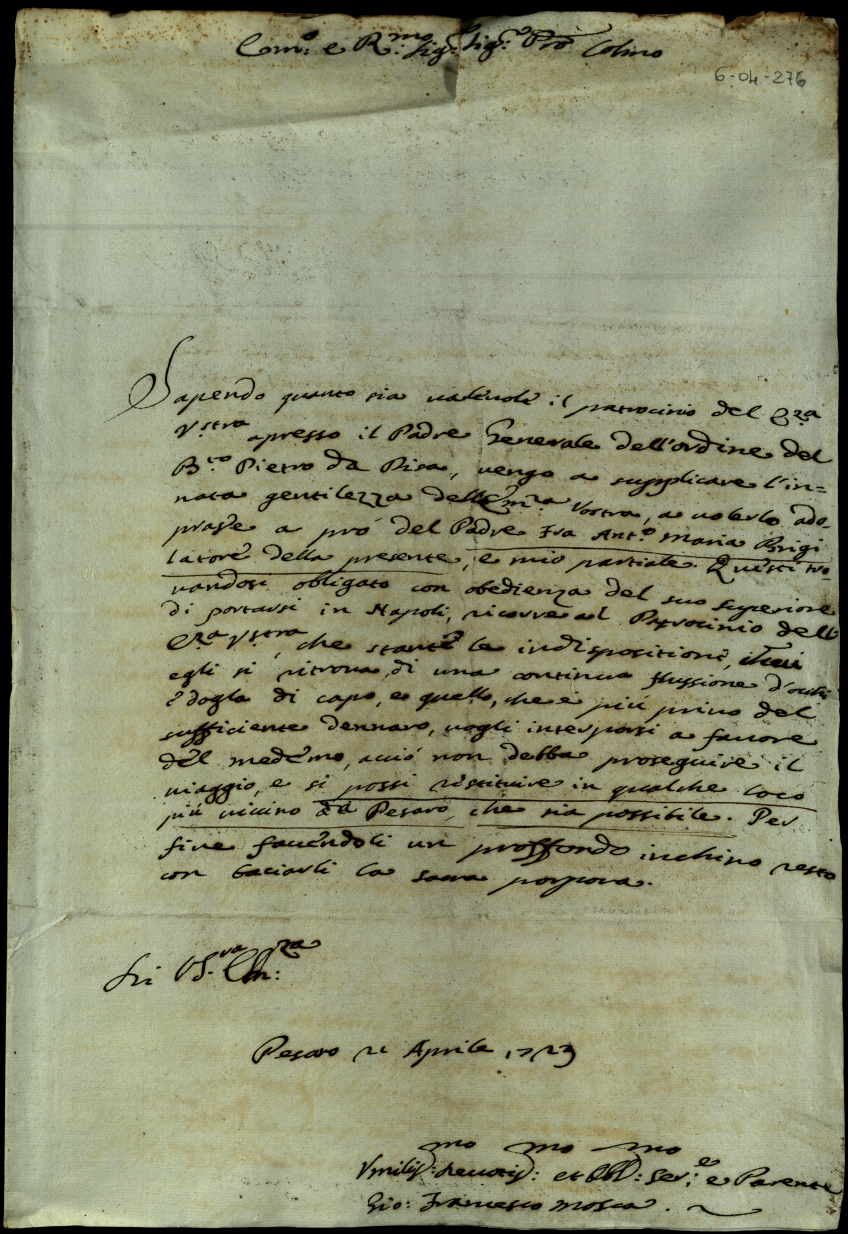 Em.o e R.mo Sig.r Sig.re Pró Colmo
6-04-276
Sapendo quanto sia valevole il patrocinio del E.za
V.stra apresso il Padre Generale dell'ordine del
B.to Pietro da Pisa, vengo a supplicare l'in=
nata gentilezza dell'Em.za Vostra, a volerlo ado-
prare a pró del Padre Fra Ant.o Maria Brigi
latore della presente, e mio partiale. Questi tro-
vandosi obligato con obedienza del suo superiore
di portarsi in Napoli, ricorre al Patrocinio dell'
E.za V.stra, che stante le indispositioni, in cui
egli si ritrova, di una continua flussione d'ochi
e dogla di capo, e quello, che è piú privo del
sufficiente dennaro, vogli interporsi a favore
del medemo, acció non debba proseguire il
viaggio, e si possi restituire in qualche loco
piú vicino da Pesaro, che sia possibile. Per
fine facendoli un proffondo inchino resto
con baciarli la sacra porpora.
Di V.S.ra Em.za
Pesaro 21 Aprile 1723
Vmiliss:mo Devotis:mo et Obl:mo Ser.e e Parente
Gio: Francesco Mosca.